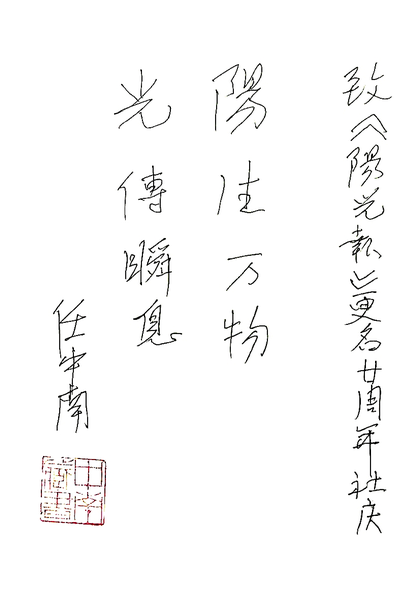 致《陽光報》更名廿周年社庆
陽生万物
光傳瞬息
任中南